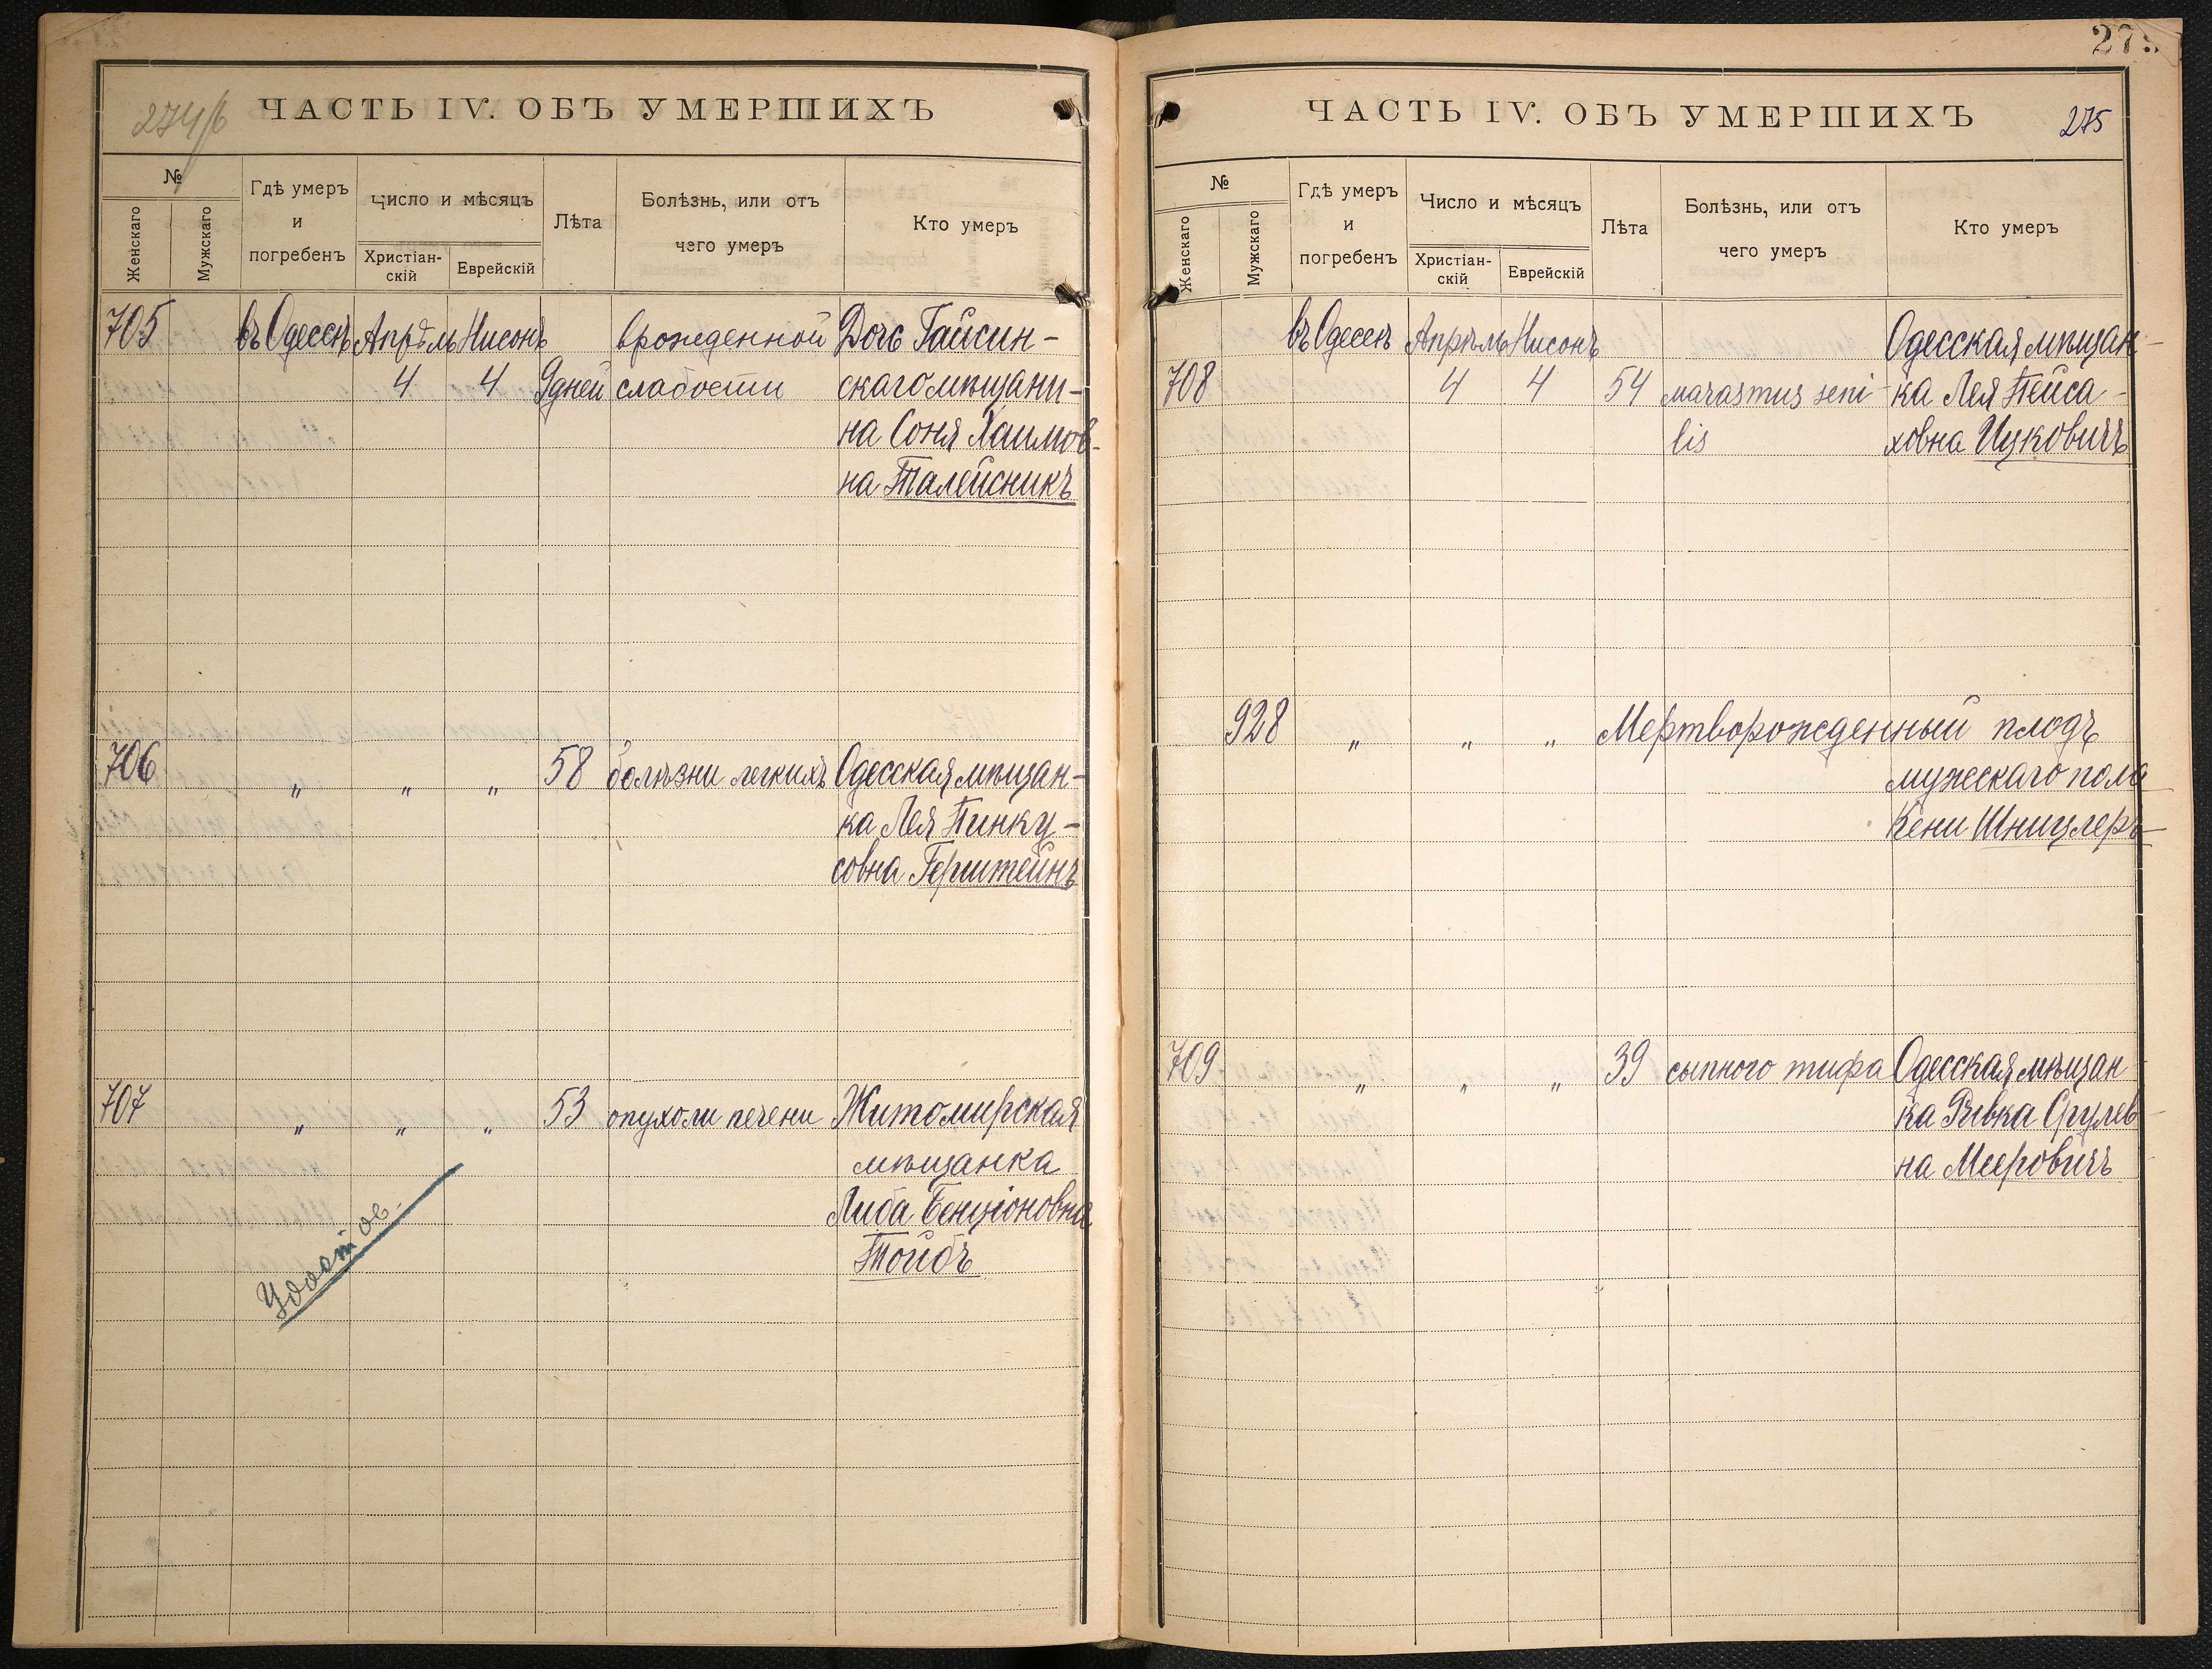 274/б
ЧАСТЬ IV. ОБЪ УМЕРШИХЪ
№
Женскаго
Мужскаго
Гдѣ умеръ
и
погребенъ
Число и мѣсяцъ
Христіан-
скій
Еврейскій
Лѣта
Болѣзнь, или отъ
чего умеръ
Кто умеръ
705 въ Одессѣ Апрѣль Нисонъ врожденной Дочь Гайсин-
4 4 9 дней слабости скаго мѣщани-
на Соня Хаимов-
на Талейсникъ
706 " " " 58 болѣзни легкихъ Одесская мѣщан-
ка Лея Пинку-
совна Герштейнъ
707 " " " 53 опухоли печени Житомирская
мѣщанка
Либа Бенціоновна
Тойбъ
275
ЧАСТЬ IV. ОБЪ УМЕРШИХЪ
275
№
Женскаго
Мужскаго
Гдѣ умеръ
и
погребенъ
Число и мѣсяцъ
Христіан-
скій
Еврейскій
Лѣта
Болѣзнь, или отъ
чему умеръ
Кто умеръ
въ Одессѣ Апрѣль Нисонъ Одесская мѣщан-
708 4 4 54 marasmus seni- ка Лея Пейса-
lis ховна Ицковичъ
928 " " " Мертворожденный плодъ
мужескаго пола
Кени Шницлеръ
709 " " " 39 сыпного тифа Одесская мѣщан-
ка Ривка Срулев-
на Мееровичъ